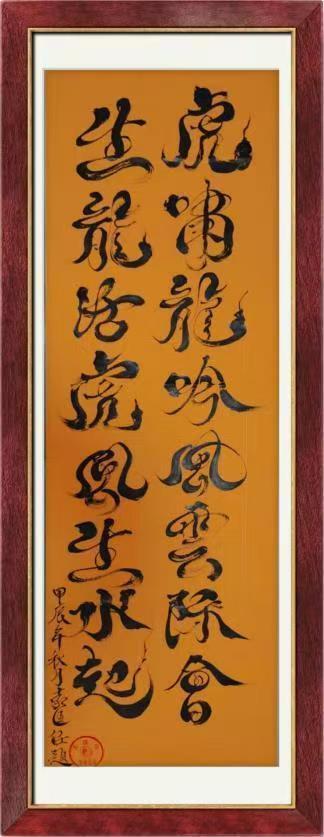 虎嘯龍吟風雲際會
生龍活虎風生水起
甲辰年秋月
題